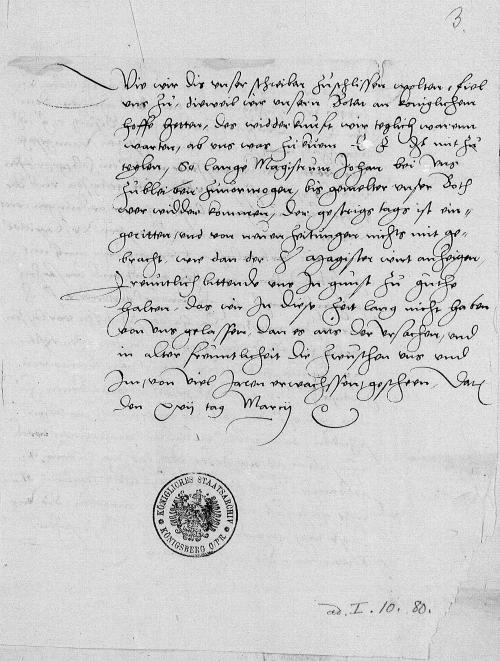 3.
Wie wir die unser schreiben zuschlissen wolten, fiel
uns zu, dieweil wir unsern Boten an koniglichem
hoffe hetten, des widderkunfft wir teglich waren
warten, ab uns was zukumen E H Ist mit zu
teylen, So lange Magistrum Johan bei uns
zubleiben zuvermogen, bis gemelter unser Both
wer widder komen, der gestrigs tags ist ein-
geritten und von neuen zeitungen nichts mit ge-
bracht, wie dan der H Magister wirt anzeigen
freuntlich bittende uns In gunst zu guthe
halten, das wir In diese zeit lang nicht haben
von uns gelassen, dan es aus der ursachen, und
in alter freuntlicheit die zwuschen uns und
Im, von viel Jaren erwachssen, gescheen, Dat
den xvij tag Marcij
KÖNIGLICHES STAATSARCHIV
KÖNIGSBERG O/PR.
ad. I. 10. 80.